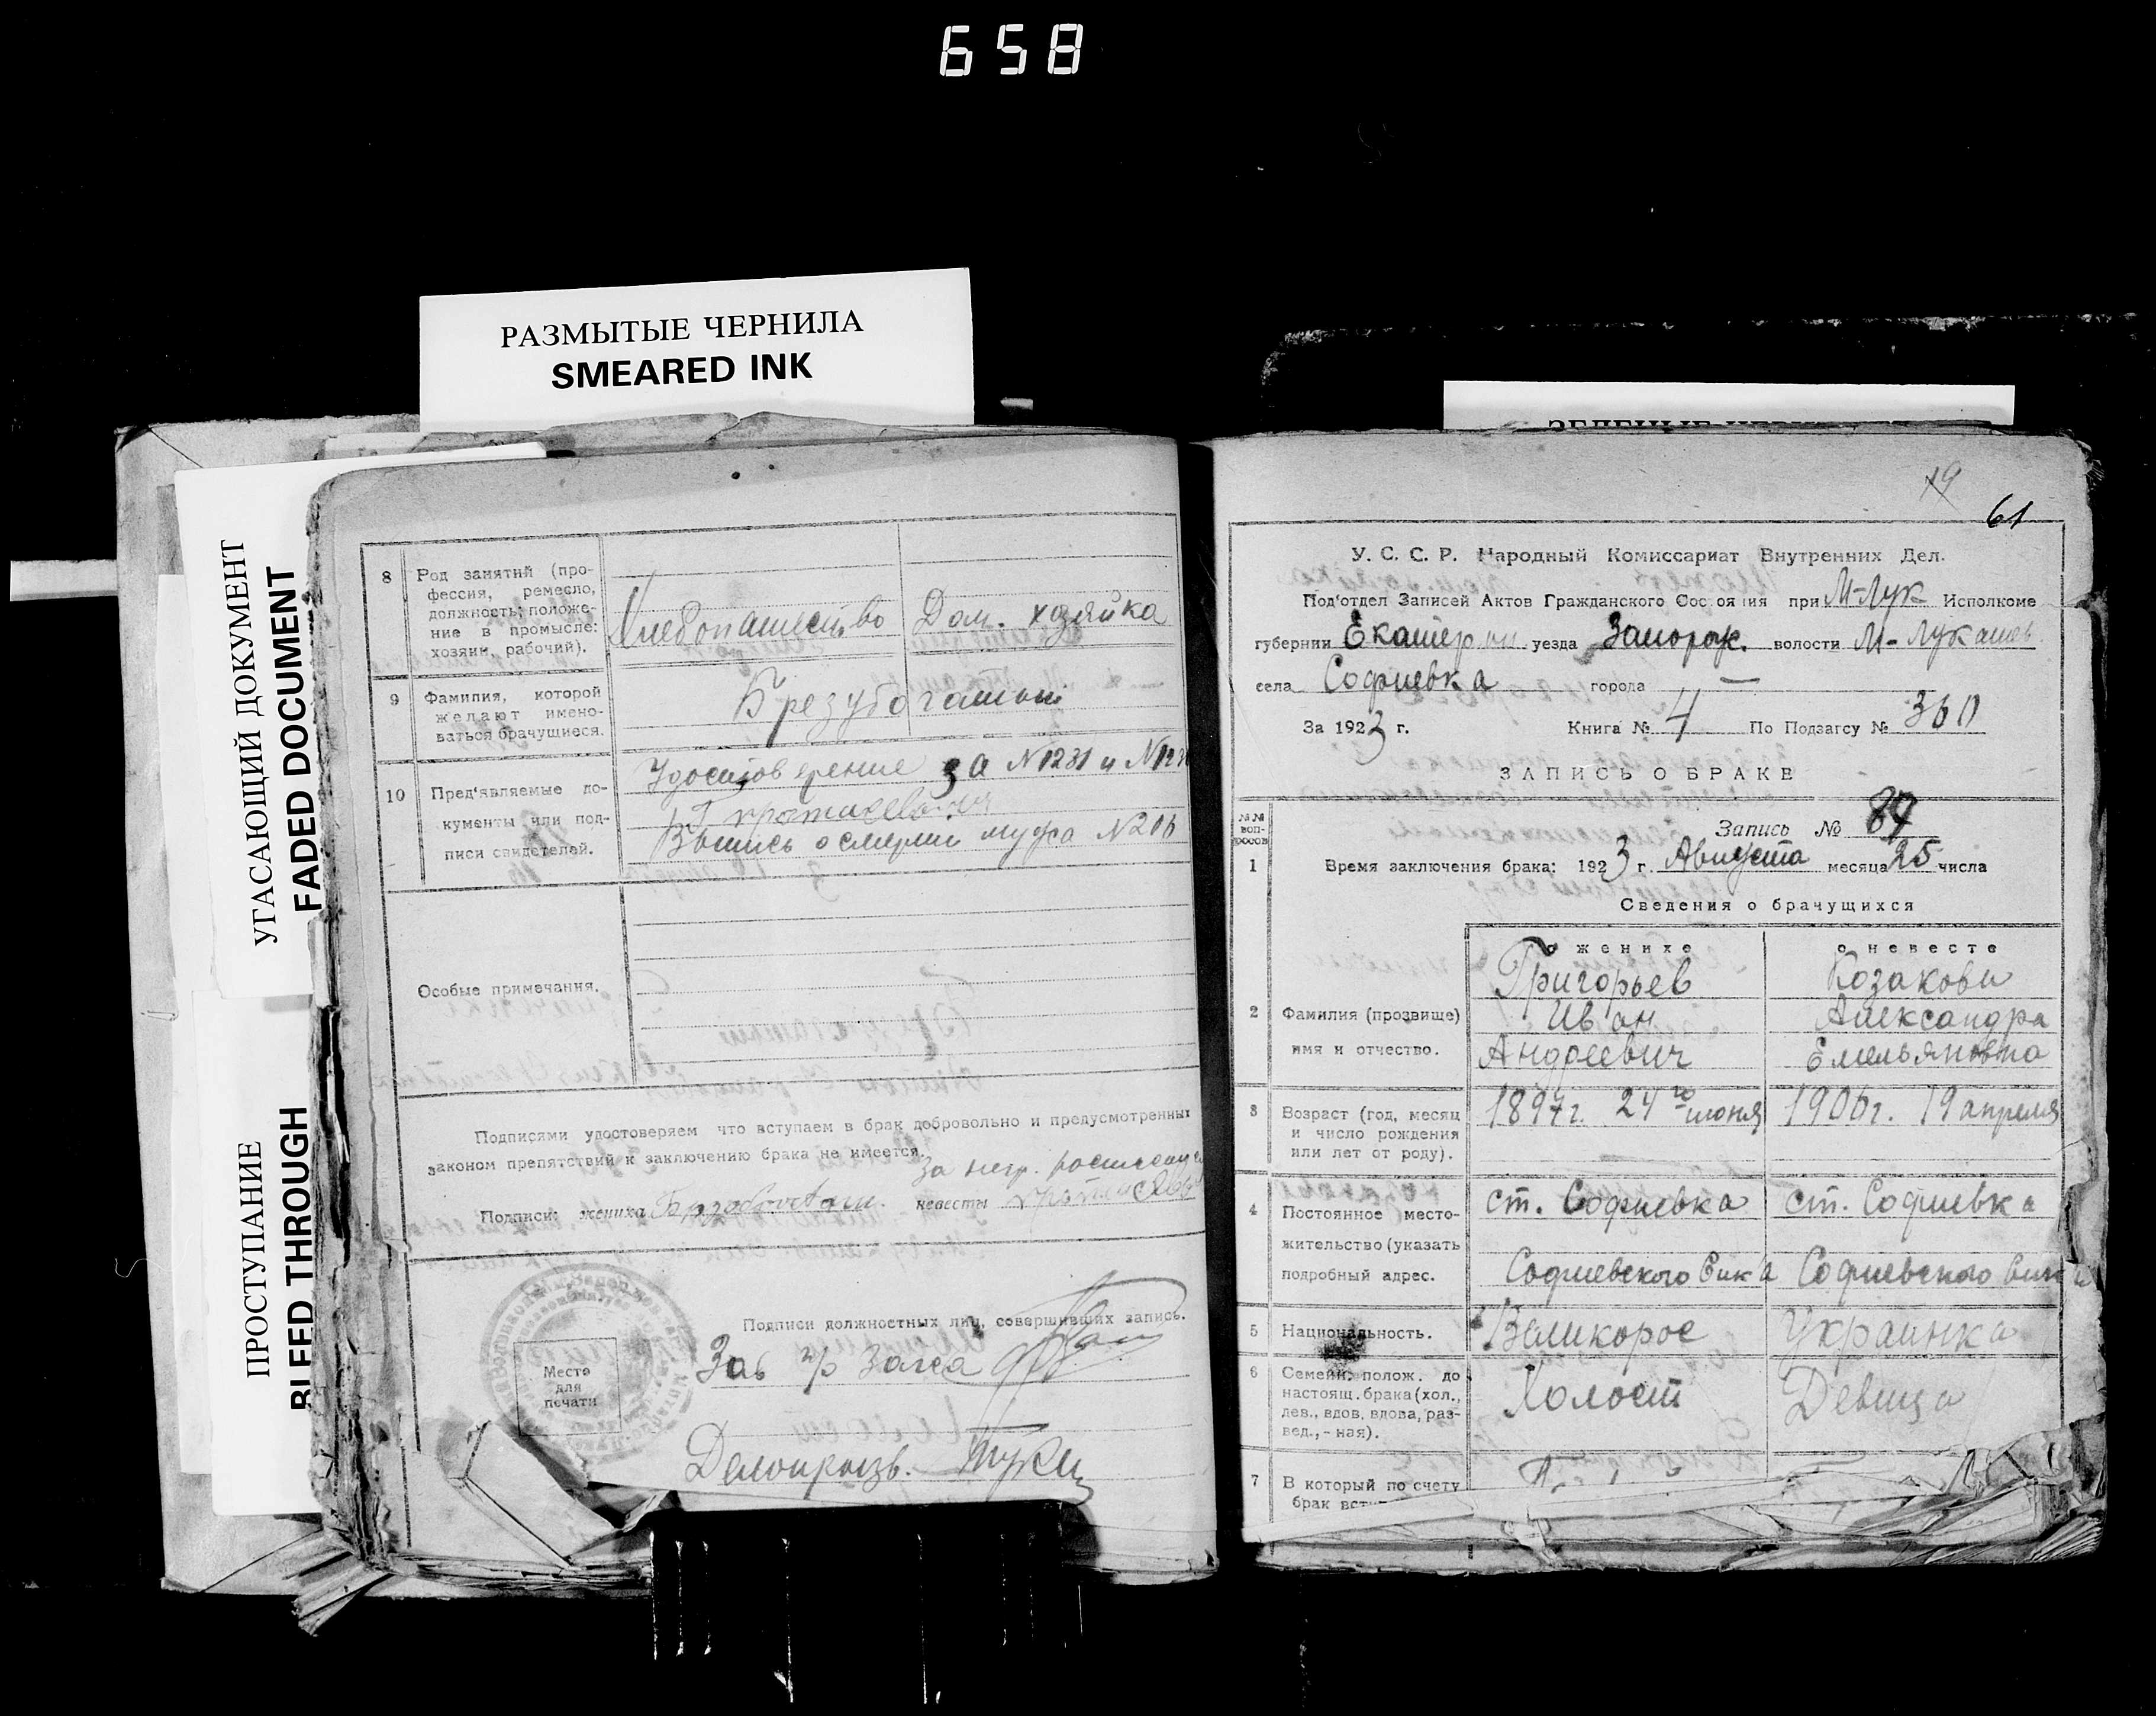 658
РАЗМЫТЫЕ ЧЕРНИЛА
SMEARED INK
УГАСАЮЩИЙ ДОКУМЕНТ
FADED DOCUMENT
ПРОСТУПАНИЕ
BLEED THROUGH
8 Род занятий (про-
фессия, ремесло,
должность; положе-
ние в промысле:
хозяин, рабочий).
Хлебопашество Дом. хозяйка
9 Фамилия, которой
желают имено-
ваться брачущиеся.
10 Пред'являемые до-
кументы или под-
писи свидетелей.
Удостоверение за №1231 и
Выпись о смерти мужа №206
Особые примечания.
Подписями удостоверяем что вступаем в брак добровольно и предусмотренных
законом препятствий к заключению брака не имеется.
за негр.
Подписи: жениха невесты
Подписи должностных лиц, совершивших запись.
Место
для
печати
Зав п/о Загса
Делопроизв.
19
61
У. С. С. Р. Народный Комиссариат Внутренних Дел.
Под'отдел Записей Актов Гражданского Состояния при М-Лук Исполкоме
губернии Екатерин уезда Запорож. волости М-Лукашев
села Софиевка города —
За 1923 г. Книга № 4 По Подзагсу № 360
ЗАПИСЬ О БРАКЕ
№№
воп-
росов
Запись №
1 Время заключения брака: 1923 г. Августа месяца 25 числа
Сведения о брачущихся
о женихе о невесте
2 Фамилия (прозвище)
имя и отчество.
Григорьев
Иван
Андреевич
Козакова
Александра
Емельяновна
3 Возраст (год, месяц
и число рождения
или лет от роду).
1897г. 24го июня 1906г. 19 апреля
4 Постоянное место-
жительство (указать
подробный адрес.
ст. Софиевка ст. Софиевка
Софиевского Софиевского
5 Национальность. Великорос Украинка
6 Семейн. полож. до
настоящ. брака (хол.,
дев., вдов, вдова, раз-
вед.,-ная).
Холост Девица
7 В который по счету
брак